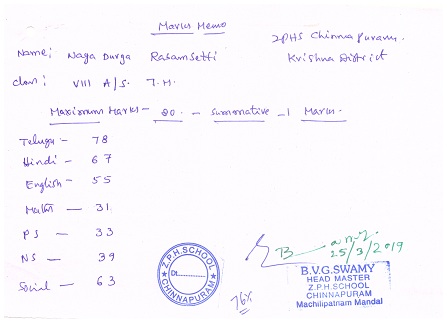 Marks Memo
ZPHS Chinnapuram.
Krishna District
Name: Naga Durga Rasamsetti
Class: VIII A/S. T.M.
Maximum Marks - 80 - Summative - 1 Marks.
Telugu - 78
Hindi - 67
English - 55
Maths - 31
PS - 33
NS - 39
Social - 63
76%
Z.P.H. SCHOOL
Dt.
CHINNAPURAM
25/3/2019
B.V.G. SWAMY
HEAD MASTER
Z.P.H. SCHOOL
CHINNAPURAM
Machilipatnam Mandal